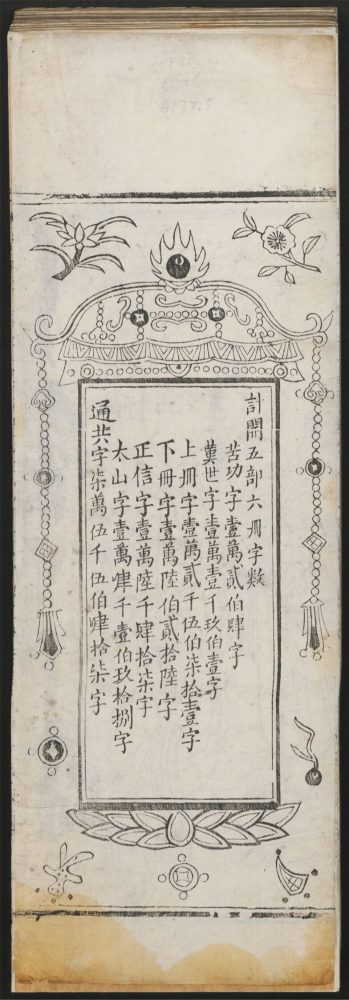 計開五部六冊字數
苦功字壹萬貳伯肆字
世字壹萬壹千玖伯壹字
上冊字壹萬貳千伍伯柒拾壹字
下冊字壹萬陸伯貳拾陸字
正信字壹萬陸千肆拾柒字
太山字壹萬肆千壹伯玖拾捌字
通共字柒萬伍千伍伯肆拾柒字